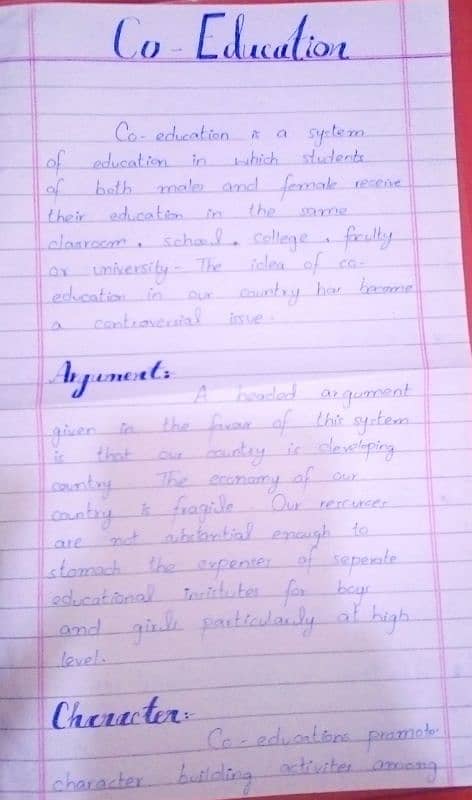 Co - Education
Co-education is a system
of education in which students
of both male and female receive
their education in the same
classroom, school, college, faculty
or university - The idea of co-
education in our country has become
a controversial issue.
Argument:
A headed argument
given in the favour of this system
is that our country is developing
country The economy of our
country is fragile. Our resources
are not substantial enough to
stomach the expenses of seperate
educational institutes for boys
and girls particularly at high
level.
Character:-
Co-educations promote
character building activites among